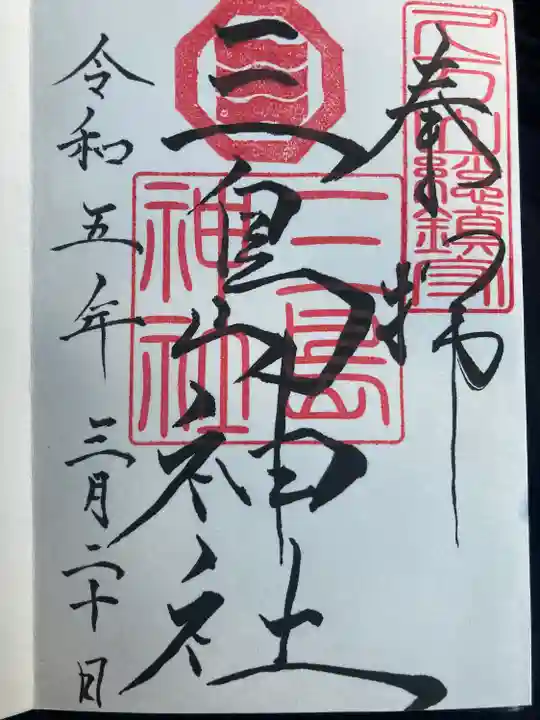 奉拝
三島神社
三島神社
令和五年三月二十日